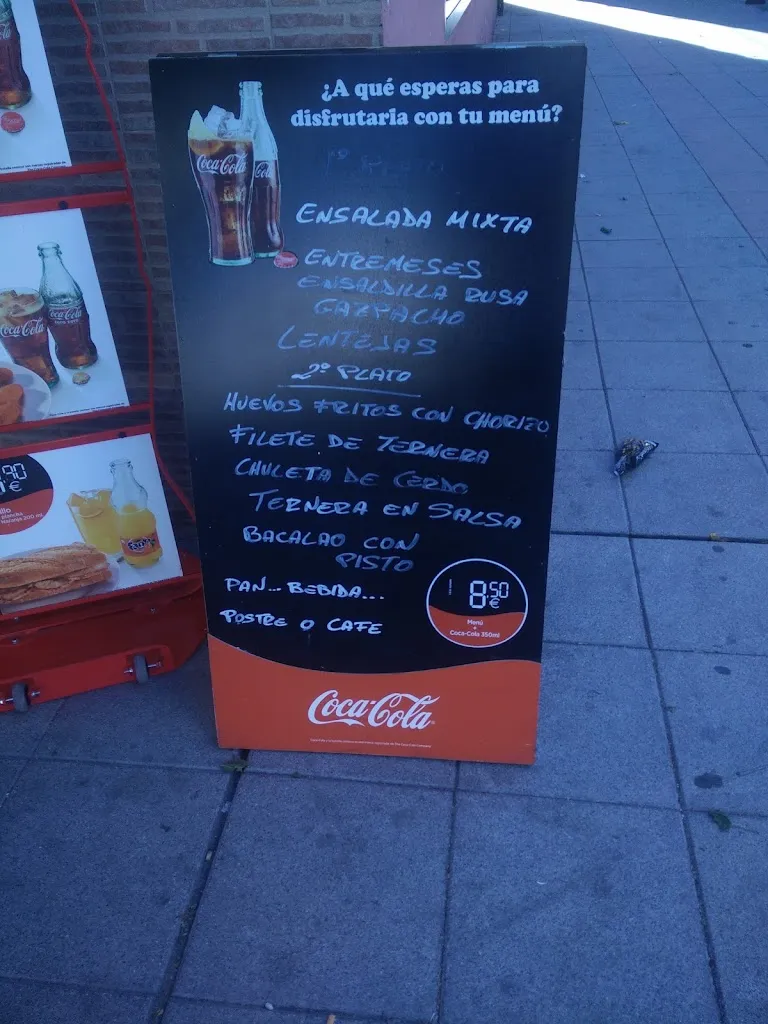 ¿A qué esperas para
disfrutarla con tu menú?
1º PLATO
ENSALADA MIXTA
ENTREMESES
ENSALDILLA RUSA
GAZPACHO
LENTEJAS
2º PLATO
HUEVOS FRITOS CON CHORIZO
FILETE DE TERNERA
CHULETA DE CERDO
TERNERA EN SALSA
BACALAO CON
PISTO
PAN... BEBIDA...
POSTRE O CAFE
8,50
€
Menú
+
Coca-Cola 350ml
Coca-Cola
Coca-Cola
Coca-Cola
Coca-Cola
,90
€
Naranja 200 ml
Fanta